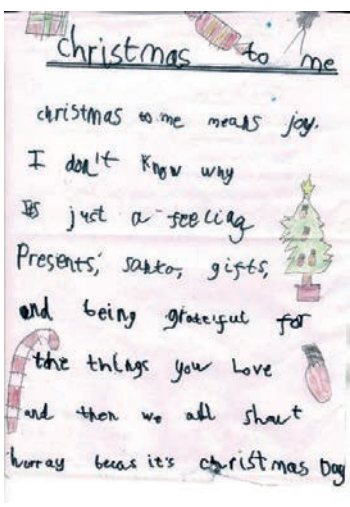 christmas to me
christmas to me means joy.
I don't know why
Its just a feeling
Presents, santa, gifts,
and being grateful for
the things you love
and then we all shout
hurray becas it's christmas Day